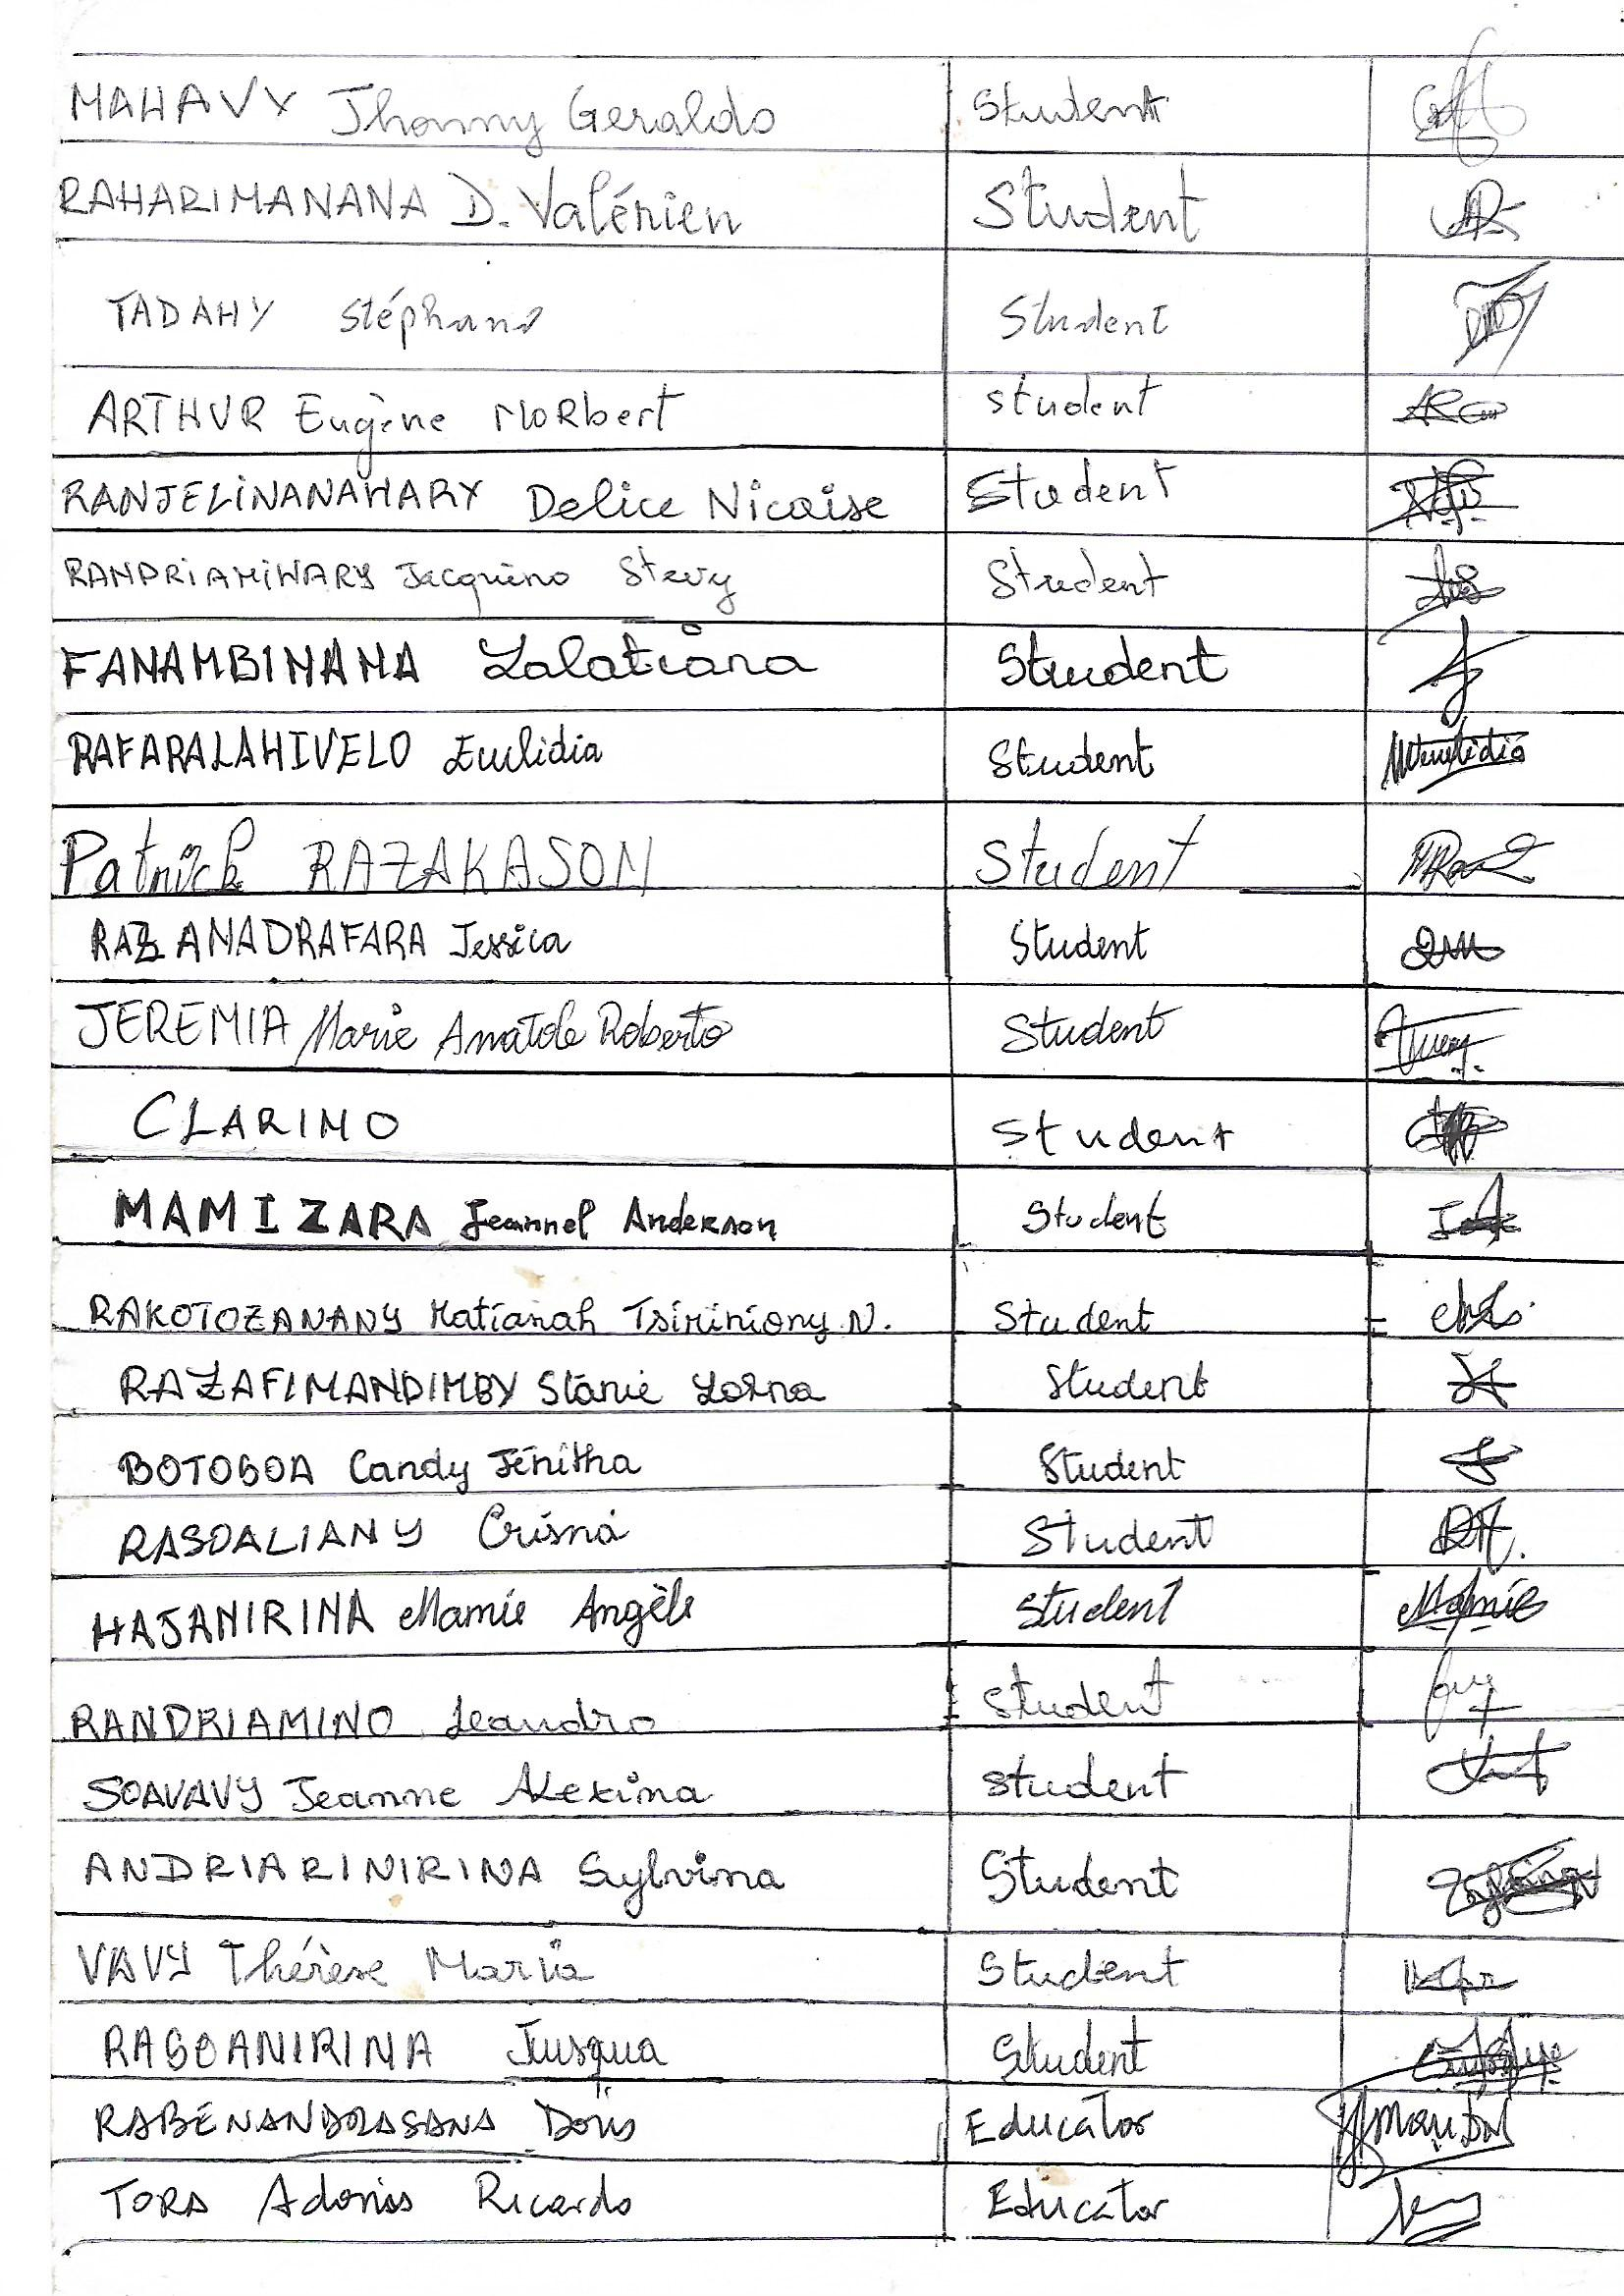 MAHAVY Jhonny Geraldo Student
RAHARIMANANA D. Valérien Student
TADAHY Stéphano Student
ARTHUR Eugène NORbert student
RANJELINANAHARY Delice Nicaise Student
RANDRIAMIHARY Jacquino Stevy Student
FANAMBINANA Lalatiana Student
RAFARALAHIVELO Euclidia Student
Patrick RAZAKASON Student
RAZANADRAFARA Jessica Student
JEREMIA Marie Anatole Roberto Student
CLARINO Student
MAMIZARA Jeannel Anderson Student
RAKOTOZANANY Matianah Tsiriniony N. Student
RAZAFIMANDIMBY Stanie Lorna Student
BOTOSOA Candy Jénitha Student
RASOALIANY Crisna Student
HAJANIRINA Mamie Angèle Student Mamie
RANDRIAMINO Leandro Student
SOAVAVY Jeanne Alexina Student
ANDRIARINIRINA Sylvina Student
VAVY Thérèse Maria Student
RASOANIRINA Jusqua Student
RABENANDRASANA Doris Educator
TORA Adoniss Ricardo Educator